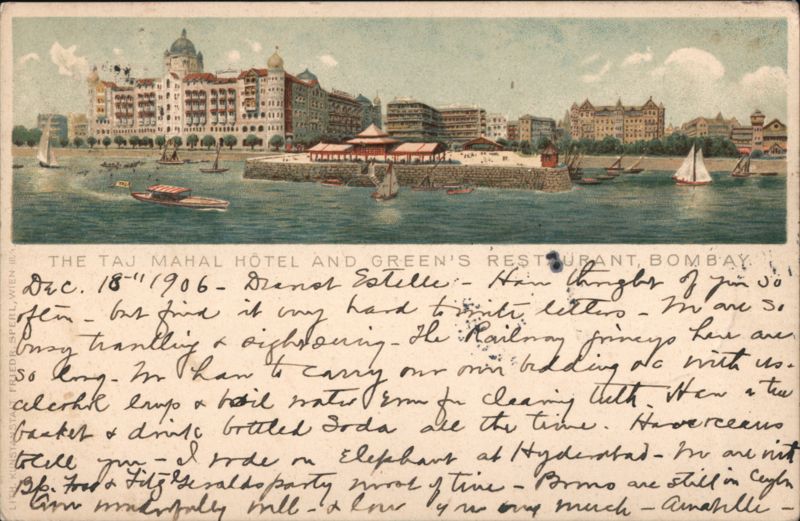 THE TAJ MAHAL HÔTEL AND GREEN'S RESTAURANT, BOMBAY.
Dec. 18" 1906 - Dearest Estelle - Have thought of you so
often - but find it very hard to write letters - We are so
busy travelling & sightseeing - The Railway journeys here are
so long - We have to carry our own bedding &c with us -
alcohol lamps & boil water even for cleaning teeth. Have a tea
basket & drink bottled Soda all the time. Have oceans
to tell you - I rode an Elephant at Hyderabad - We are with
Bp. Foss & Fitzgeralds party most of time - Bros are still in Ceylon
Am wonderfully well - & love you very much -
LITH. KUNSTANSTALT FRIEDR. SPERL, WIEN III/